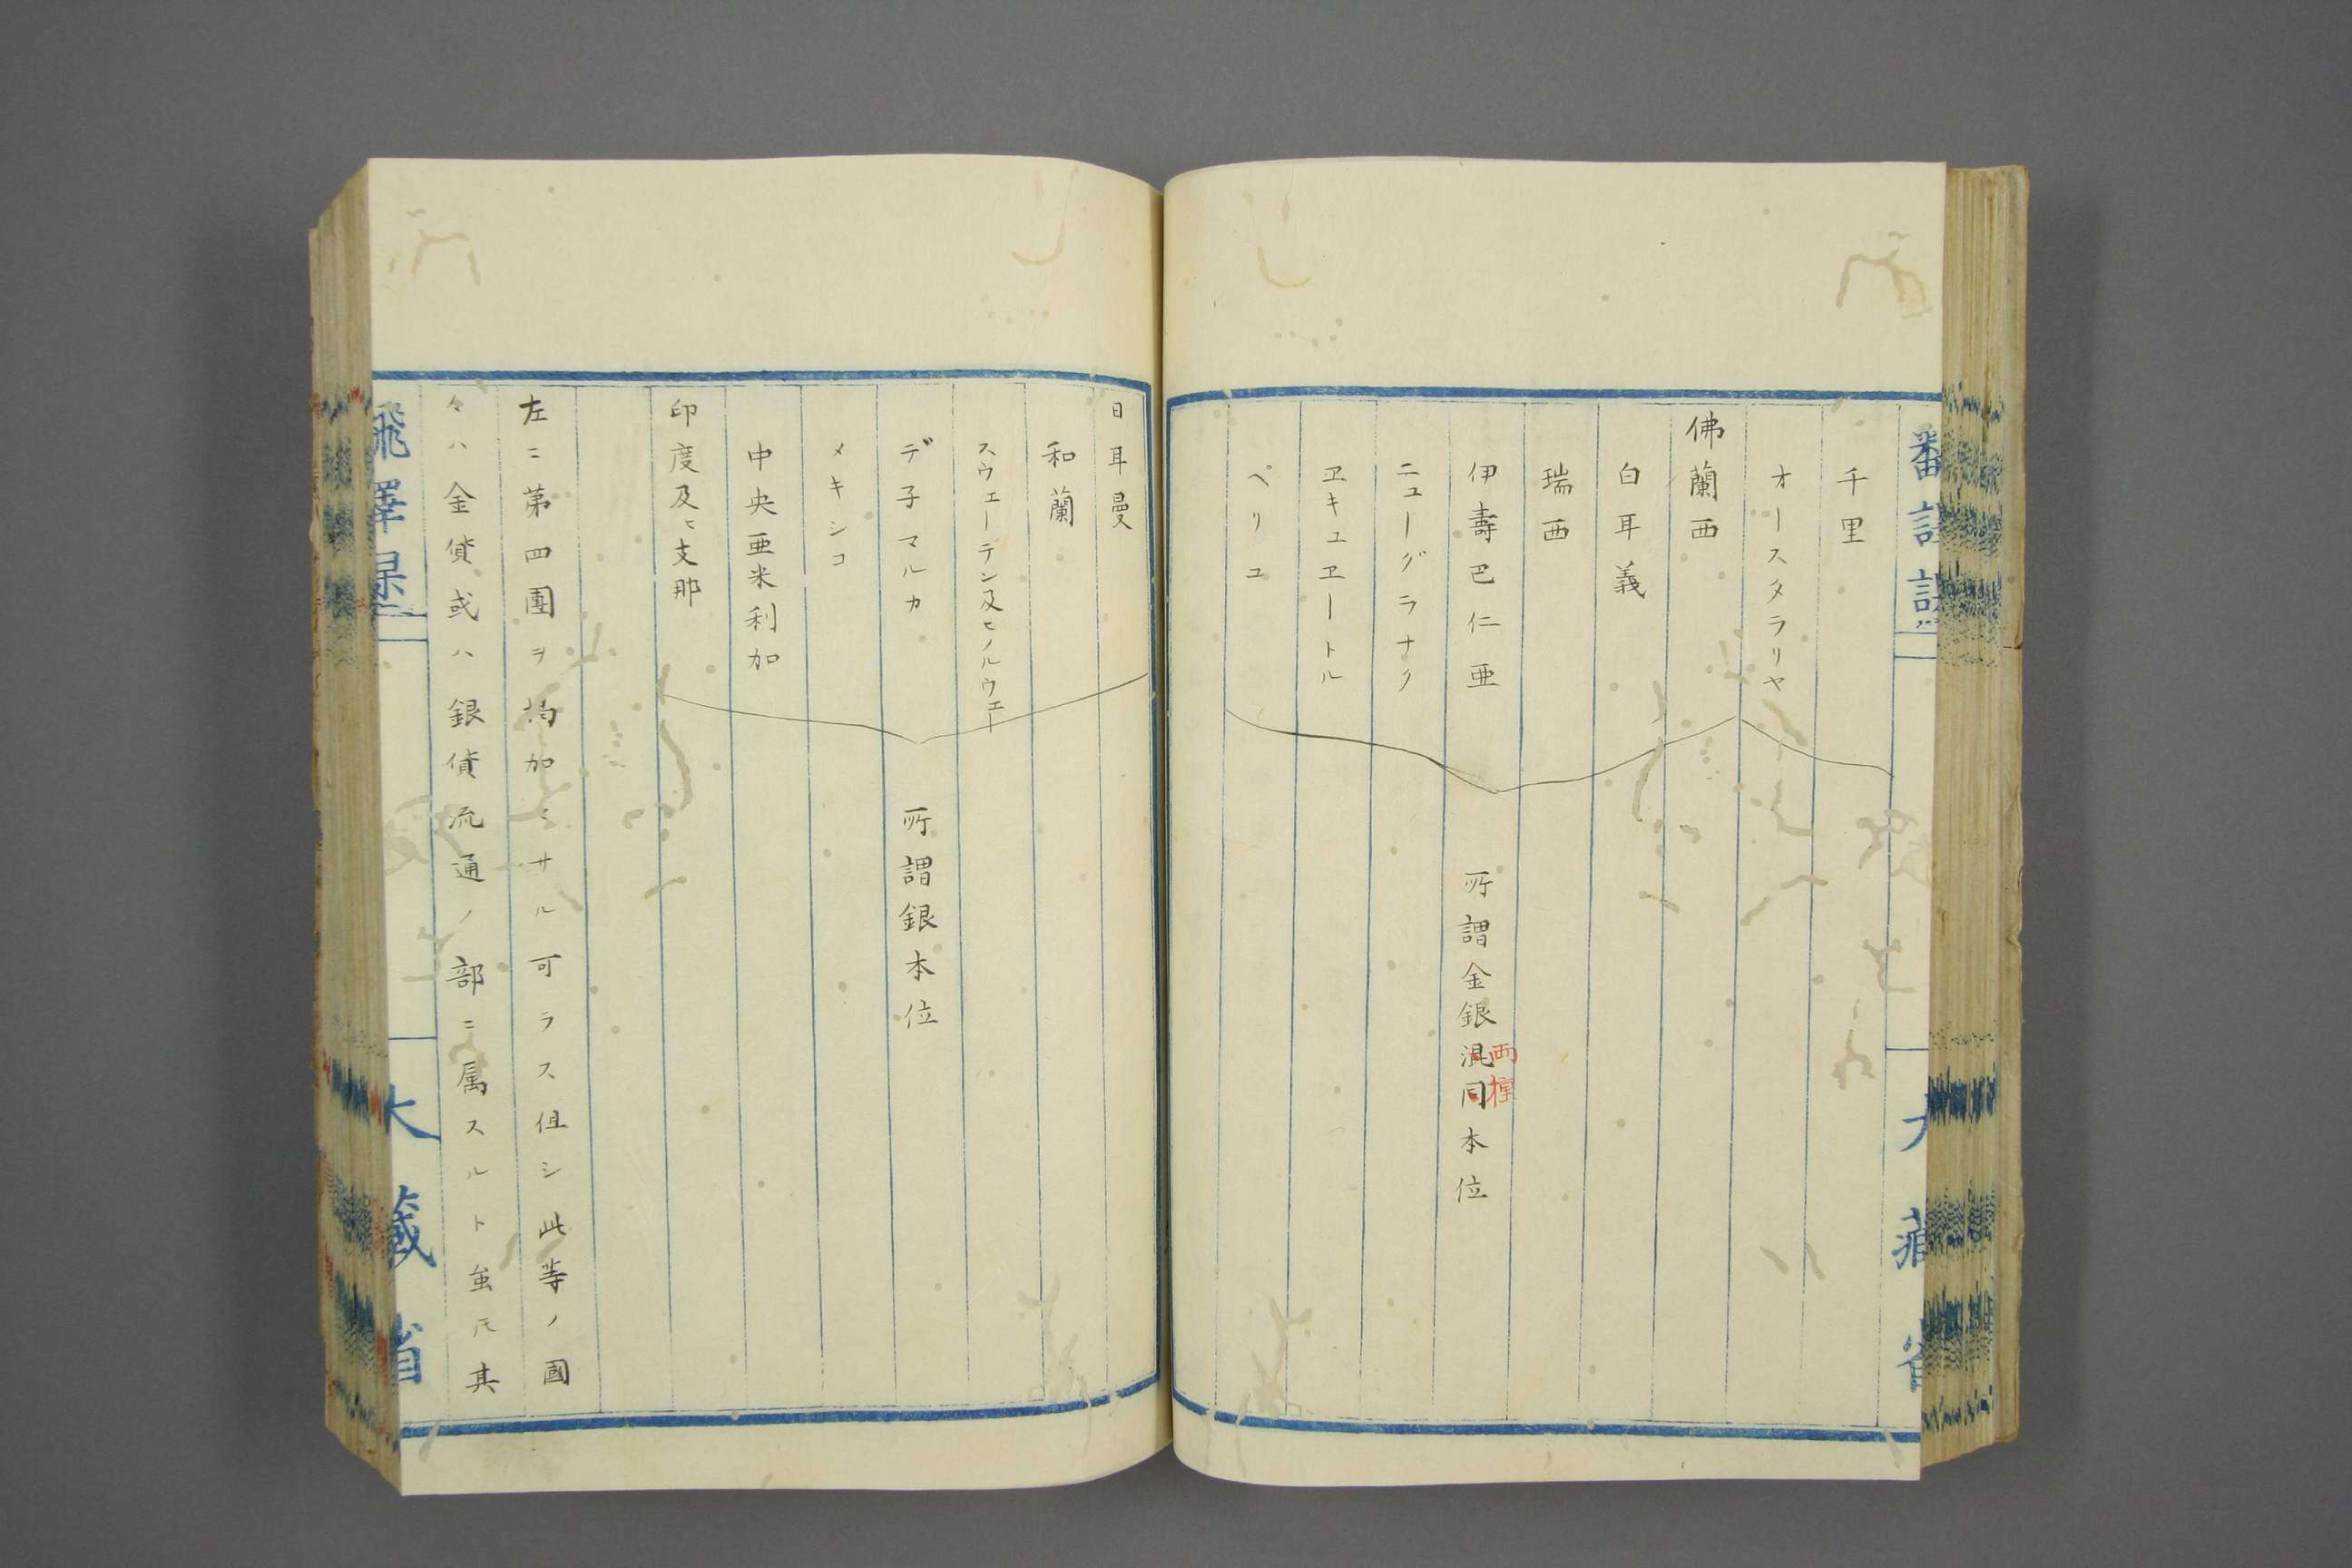 千里
オースタラリヤ
佛蘭西
白耳義
瑞西
伊壽巴仁亜
ニューグラナダ
ヱキュヱートル
ペリユ
所謂金銀混同本位
両種
日耳曼
和蘭
スウェーデン及ヒノルウェー
デ子マルカ
メキシコ
中央亜米利加
印度及ヒ支那
所謂銀本位
左ニ第四團ヲ
加ヘサル可ラス但シ此等ノ國
々ハ金貨或ハ銀貨流通ノ部ニ属スルト虽𪜈其
大藏省
大藏省